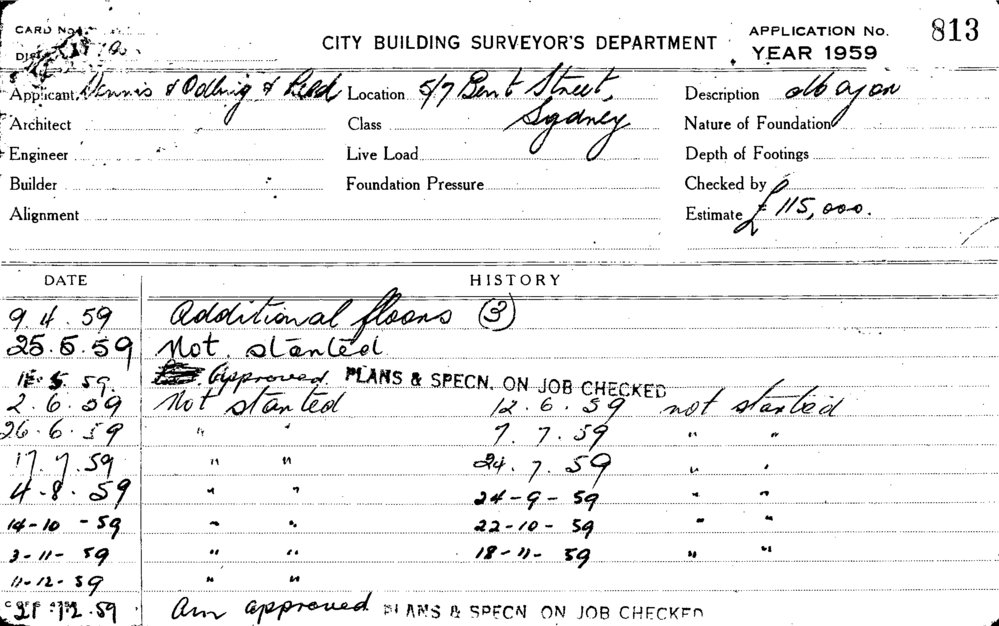 CARD No.
CITY BUILDING SURVEYOR'S DEPARTMENT
APPLICATION No. 813
YEAR 1959
Applicant Dennis & &
Location 5/7 Bent Street,
Sydney
Description
Architect
Class
Nature of Foundation
Engineer
Live Load
Depth of Footings
Builder
Foundation Pressure
Checked by
Alignment
Estimate £115,000.
DATE HISTORY
9.4.59 Additional floors (3)
25.5.59 Not started
5.59. Approved. PLANS & SPECN. ON JOB CHECKED
2.6.59 Not started 12.6.59 not started
26.6.59 " " 7.7.59 " "
17.7.59 " " 24.7.59 " "
4-8-59 " " 24-9-59 " "
14-10-59 " " 22-10-59 " "
3-11-59 " " 18-11-59 " "
11-12-59 " "
21.12.59 Am approved PLANS & SPECN ON JOB CHECKED